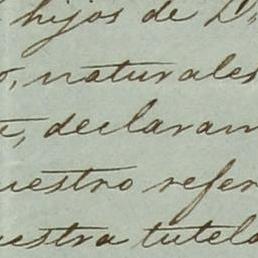 hijos de D
o, naturales
a, declaram
uestro refer
uestra tutela